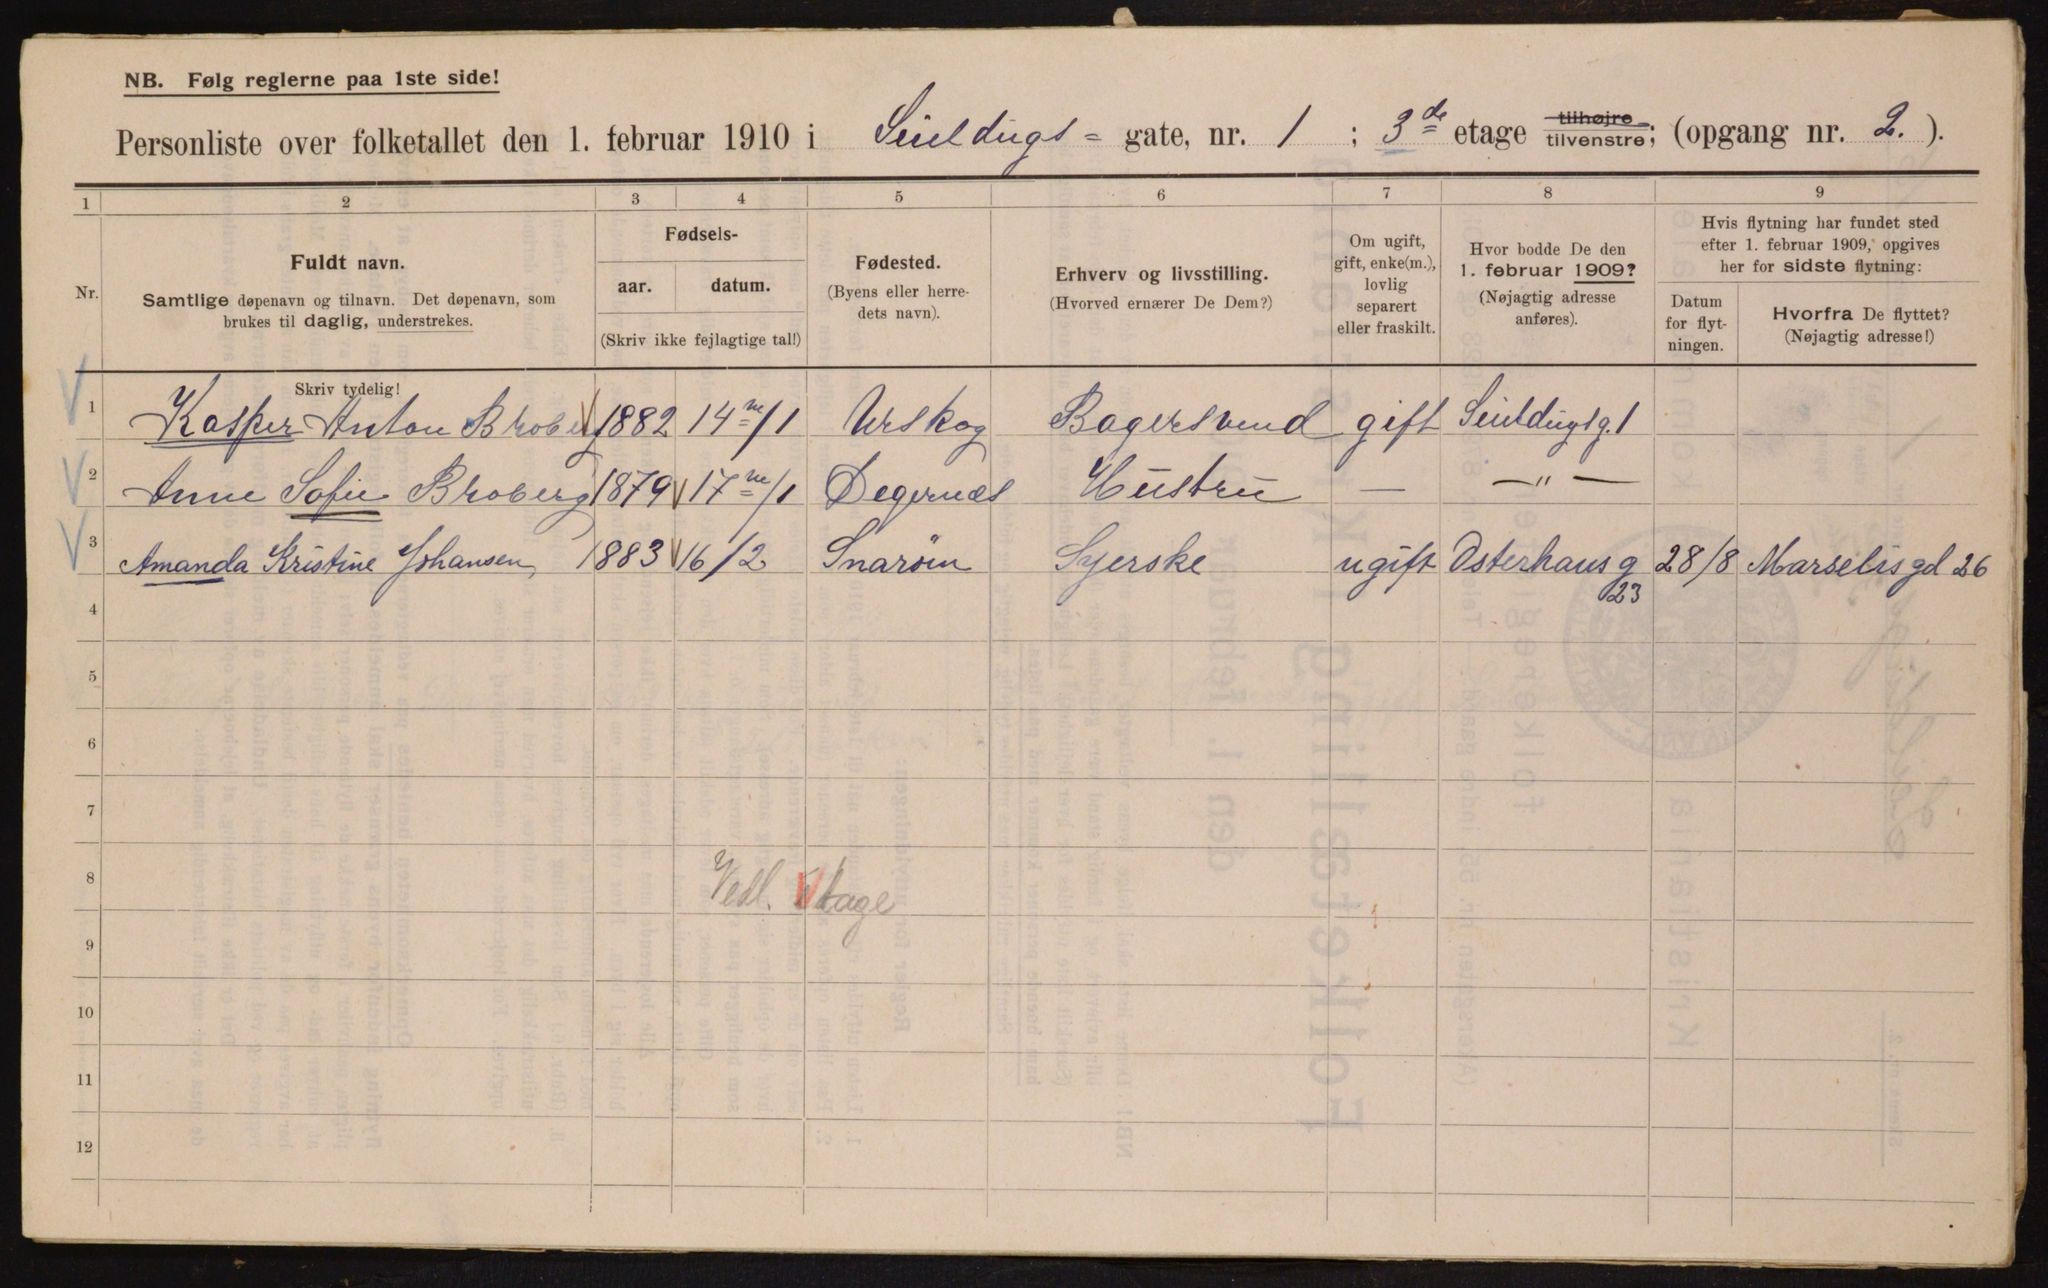 NB. Følg reglerne paa 1ste side!
Personliste over folketallet den 1. februar 1910 i Seildugs = gate, nr. 1 ; 3de etage tilhøjre tilvenstre; (opgang nr. 2. ).
1 2 3 4 5 6 7 8 9
Nr.
Fuldt navn.
Samtlige døpenavn og tilnavn. Det døpenavn, som
brukes til daglig, understrekes.
Skriv tydelig!
Fødsels-
aar. datum.
(Skriv ikke fejlagtige tal!)
Fødested.
(Byens eller herre-
dets navn).
Erhverv og livsstilling.
(Hvorved ernærer De Dem?)
Om ugift,
gift, enke(m.),
lovlig
separert
eller fraskilt.
Hvor bodde De den
1. februar 1909?
(Nøjagtig adresse
anføres).
Hvis flytning har fundet sted
efter 1. februar 1909, opgives
her for sidste flytning:
Datum
for flyt-
ningen.
Hvorfra De flyttet?
(Nøjagtig adresse!)
1 Kasper Anton Broberg 1882 14de/1 Urskog Bagersvend gift Seildugsg. 1
2 Anne Sofie Broberg 1879 17de/1 Degernæs Hustru — —„—
3 Amanda Kristine Johansen, 1883 16/2 Snarøen Syerske ugift Osterhausg 28/8 Marselisgd 26
23
4
5
6
7
8 Vesl. etage
9
10
11
12